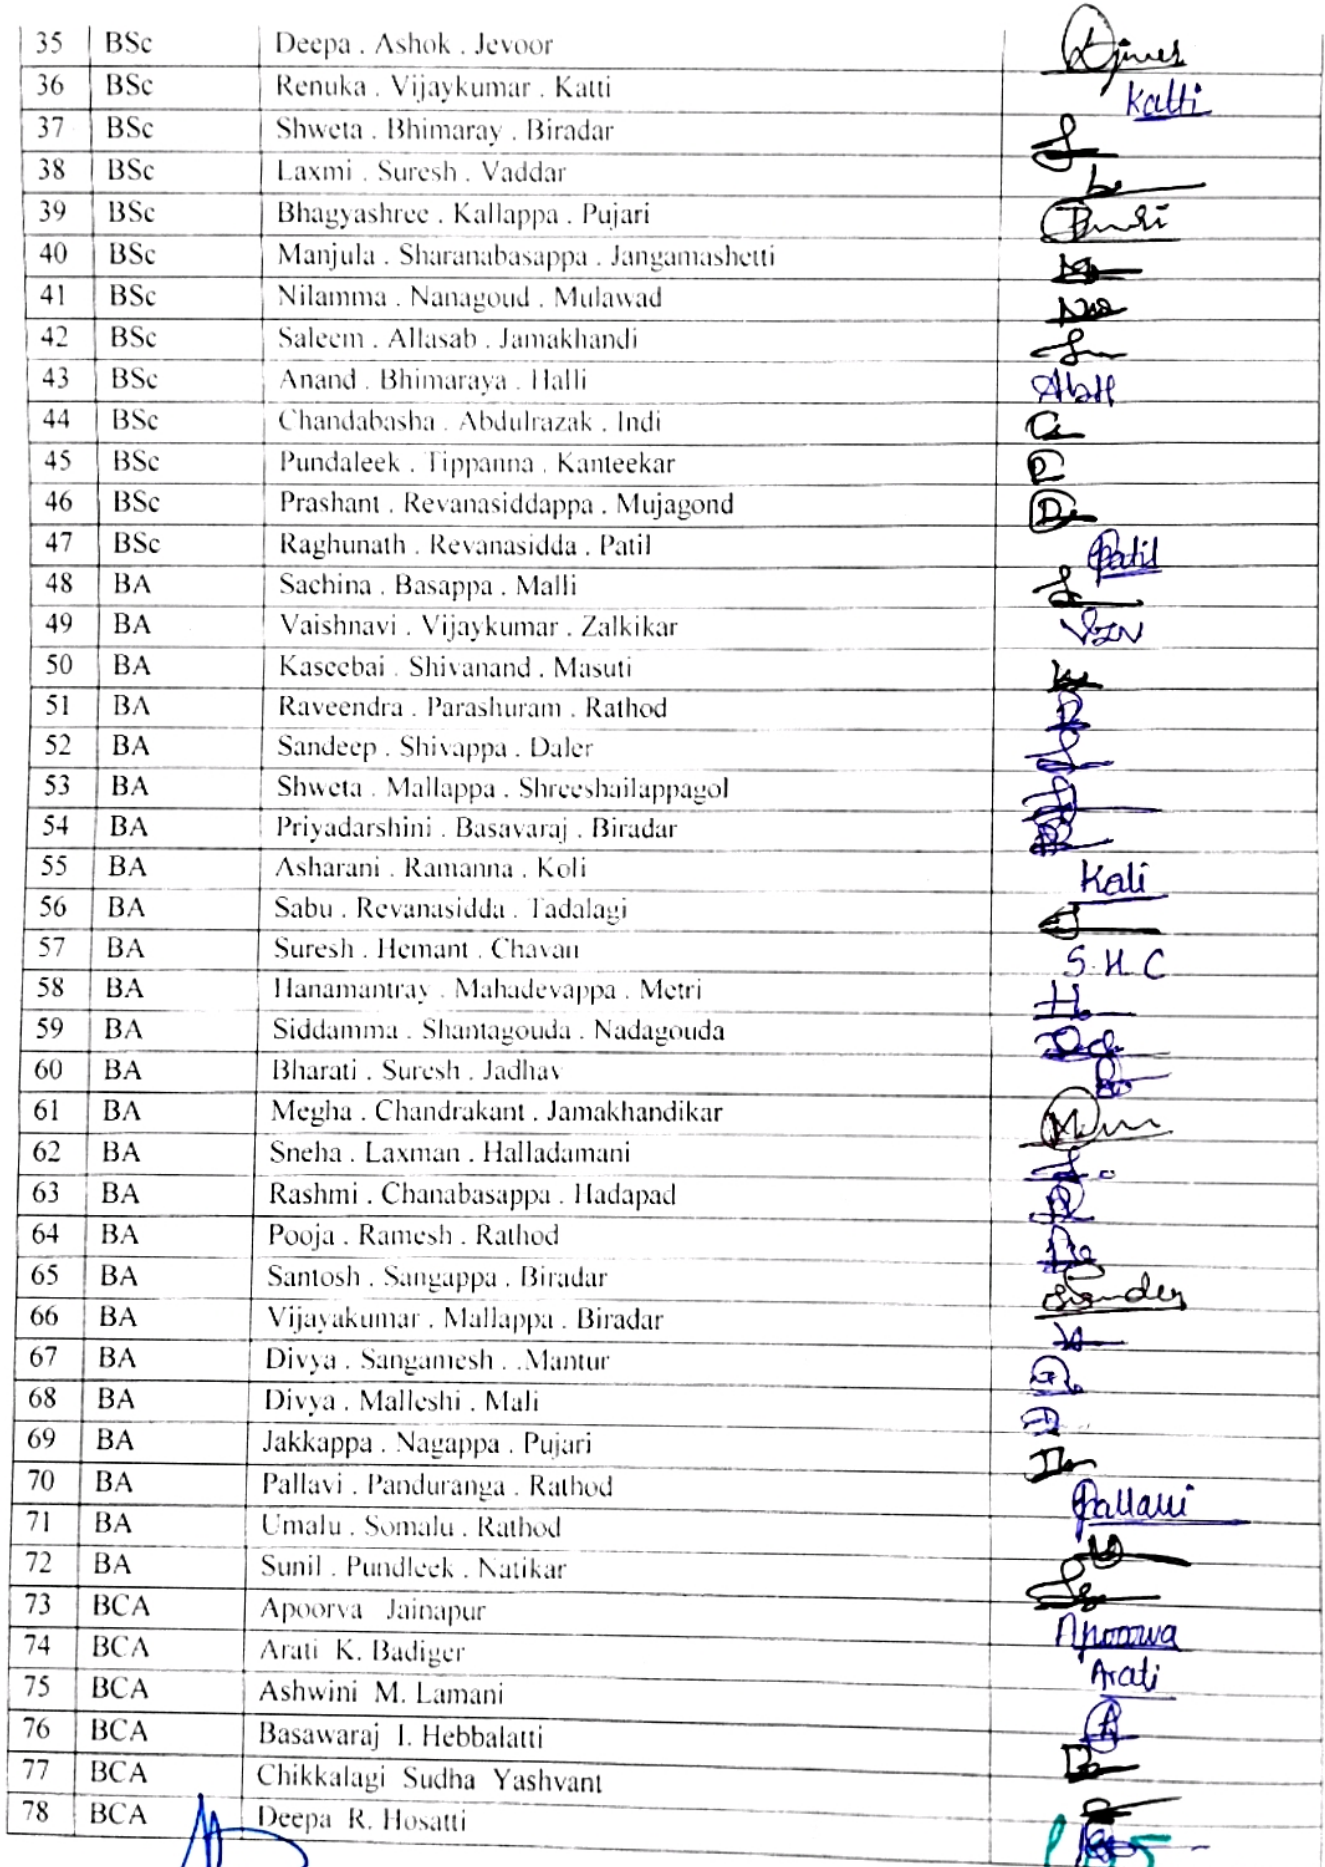 35 BSc Deepa . Ashok . Jevoor
36 BSc Renuka . Vijaykumar . Katti Katti
37 BSc Shweta . Bhimaray . Biradar
38 BSc Laxmi . Suresh . Vaddar
39 BSc Bhagyashree . Kallappa . Pujari
40 BSc Manjula . Sharanabasappa . Jangamashetti
41 BSc Nilamma . Nanagoud . Mulawad
42 BSc Saleem . Allasab . Jamakhandi
43 BSc Anand . Bhimaraya . Halli
44 BSc Chandabasha . Abdulrazak . Indi
45 BSc Pundaleek . Tippanna . Kanteekar
46 BSc Prashant . Revanasiddappa . Mujagond
47 BSc Raghunath . Revanasidda . Patil Patil
48 BA Sachina . Basappa . Malli
49 BA Vaishnavi . Vijaykumar . Zalkikar
50 BA Kaseebai . Shivanand . Masuti
51 BA Raveendra . Parashuram . Rathod
52 BA Sandeep . Shivappa . Daler
53 BA Shweta . Mallappa . Shreeshailappagol
54 BA Priyadarshini . Basavaraj . Biradar
55 BA Asharani . Ramanna . Koli Kali
56 BA Sabu . Revanasidda . Tadalagi
57 BA Suresh . Hemant . Chavan S.H.C
58 BA Hanamantray . Mahadevappa . Metri
59 BA Siddamma . Shantagouda . Nadagouda
60 BA Bharati . Suresh . Jadhav
61 BA Megha . Chandrakant . Jamakhandikar
62 BA Sneha . Laxman . Halladamani
63 BA Rashmi . Chanabasappa . Hadapad
64 BA Pooja . Ramesh . Rathod
65 BA Santosh . Sangappa . Biradar
66 BA Vijayakumar . Mallappa . Biradar
67 BA Divya . Sangamesh . .Mantur
68 BA Divya . Malleshi . Mali
69 BA Jakkappa . Nagappa . Pujari
70 BA Pallavi . Panduranga . Rathod Pallavi
71 BA Umalu . Somalu . Rathod
72 BA Sunil . Pundleek . Natikar
73 BCA Apoorva Jainapur Apoorva
74 BCA Arati K. Badiger Arati
75 BCA Ashwini M. Lamani
76 BCA Basawaraj I. Hebbalatti
77 BCA Chikkalagi Sudha Yashvant
78 BCA Deepa R. Hosatti